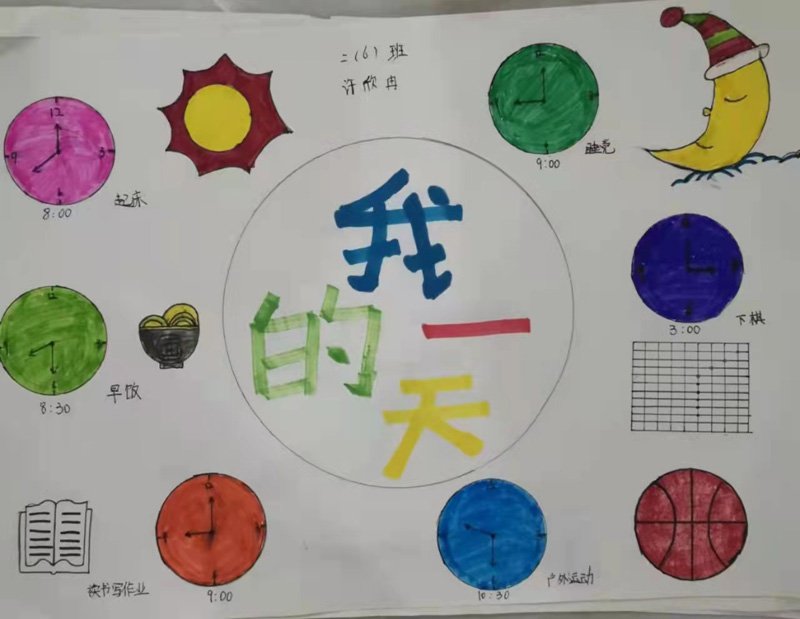 二(6)班
许欣冉
12
3
9
8:00
起床
9:00
睡觉
我
的一
天
3:00
下棋
8:30
早饭
读书写作业
9:00
10:30
户外运动